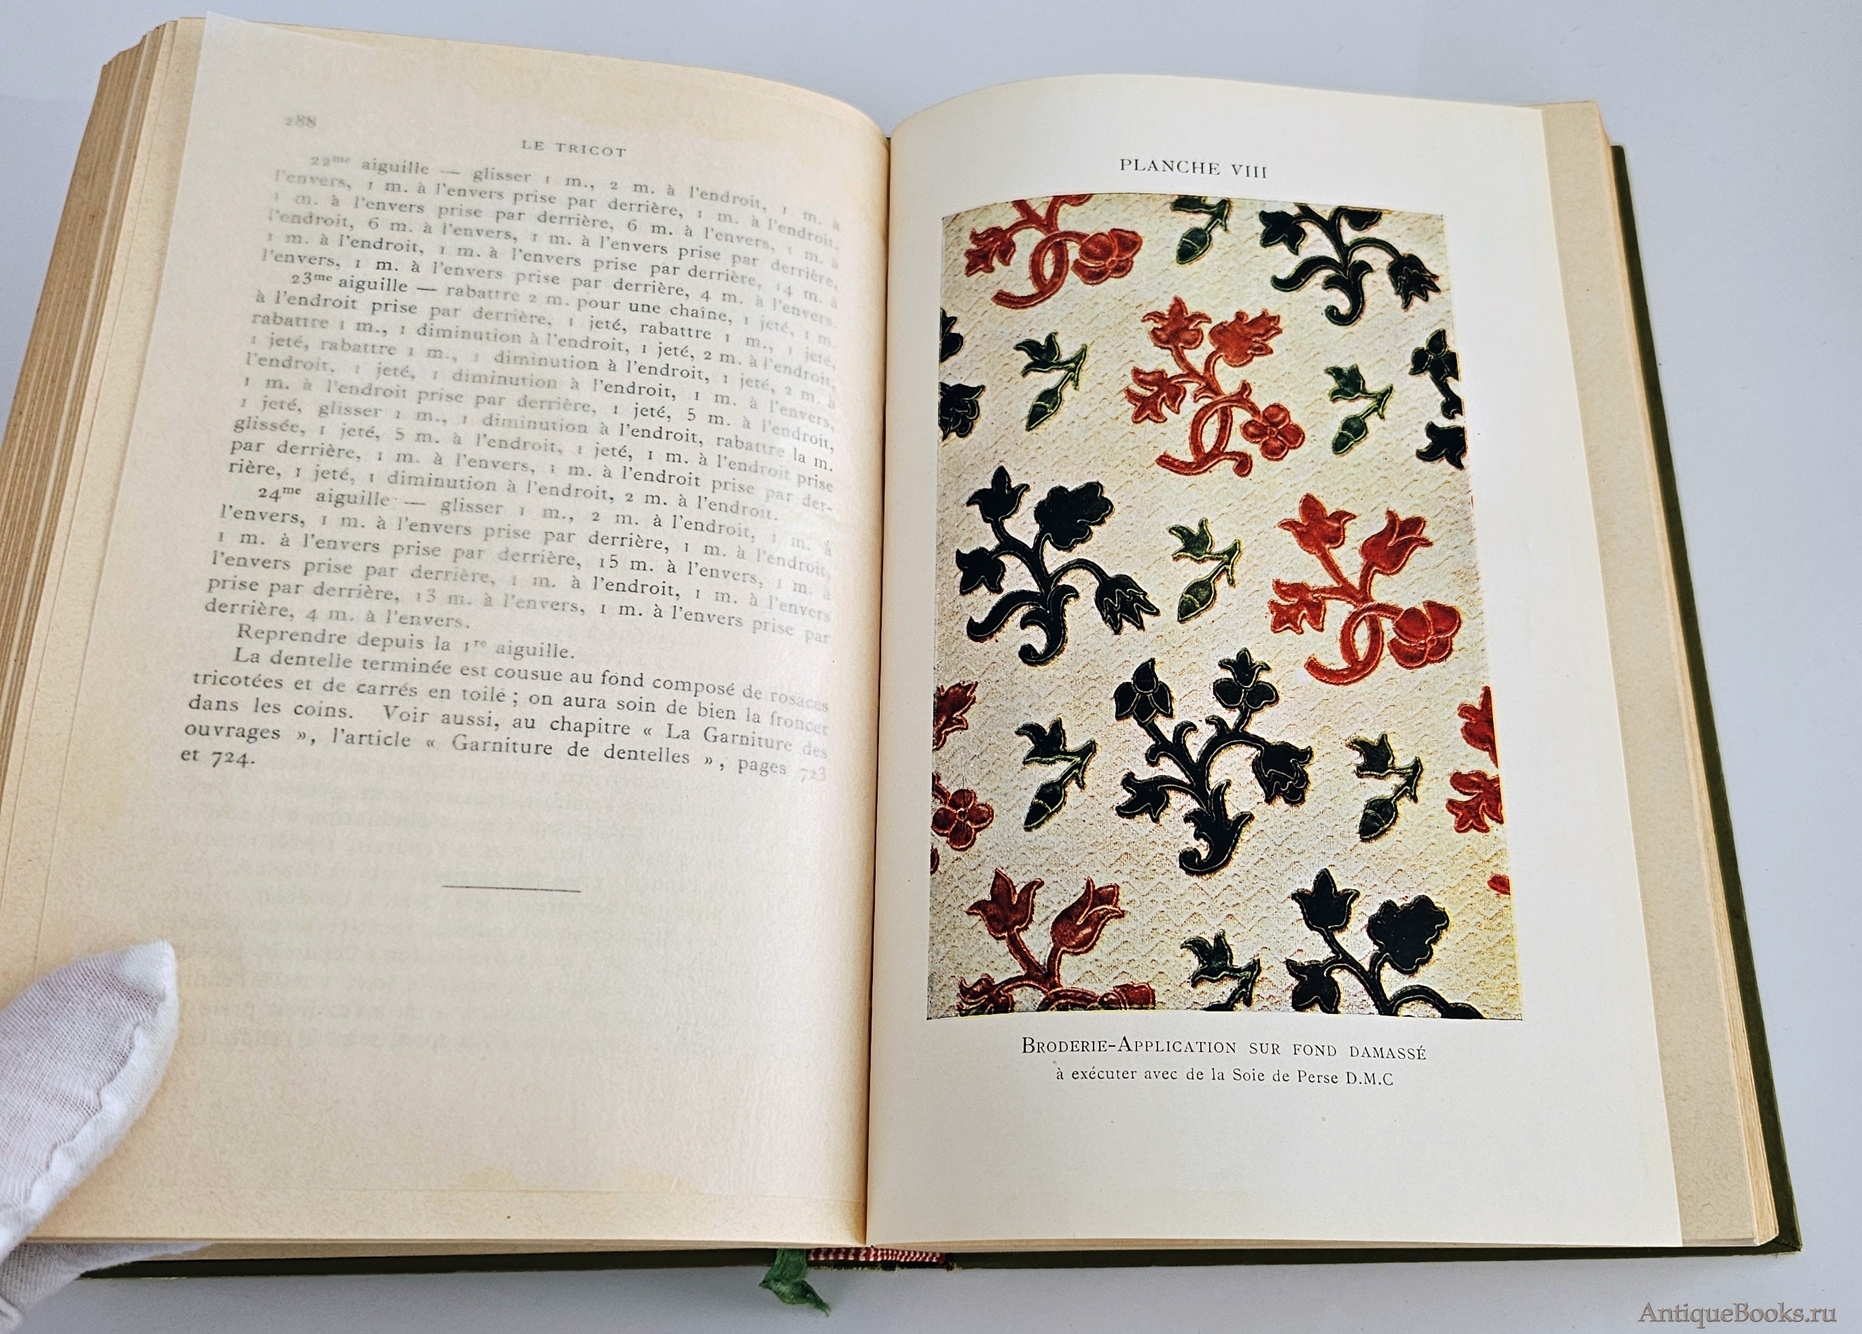 288
LE TRICOT
22me aiguille — glisser 1 m., 2 m. à l'endroit, 1 m. à
l'envers, 1 m. à l'envers prise par derrière, 1 m. à l'endroit,
1 m. à l'envers prise par derrière, 6 m. à l'envers, 1 m. à
l'endroit, 6 m. à l'envers, 1 m. à l'envers prise par derrière,
1 m. à l'endroit, 1 m. à l'envers prise par derrière, 14 m. à
l'envers, 1 m. à l'envers prise par derrière, 4 m. à l'envers.
23me aiguille — rabattre 2 m. pour une chaîne, 1 jeté, 1 m.
à l'endroit prise par derrière, 1 jeté, rabattre 1 m., 1 jeté,
rabattre 1 m., 1 diminution à l'endroit, 1 jeté, 2 m. à l'endroit,
1 jeté, rabattre 1 m., 1 diminution à l'endroit, 1 jeté, 2 m. à
l'endroit, 1 jeté, 1 diminution à l'endroit, 1 m. à l'envers,
1 m. à l'endroit prise par derrière, 1 jeté, 5 m. à l'endroit,
1 jeté, glisser 1 m., 1 diminution à l'endroit, rabattre la m.
glissée, 1 jeté, 5 m. à l'endroit, 1 jeté, 1 m. à l'endroit prise
par derrière, 1 m. à l'envers, 1 m. à l'endroit prise par der-
rière, 1 jeté, 1 diminution à l'endroit, 2 m. à l'endroit.
24me aiguille — glisser 1 m., 2 m. à l'endroit, 1 m. à
l'envers, 1 m. à l'envers prise par derrière, 1 m. à l'endroit,
1 m. à l'envers prise par derrière, 15 m. à l'envers, 1 m. à
l'envers prise par derrière, 1 m. à l'endroit, 1 m. à l'envers
prise par derrière, 13 m. à l'envers, 1 m. à l'envers prise par
derrière, 4 m. à l'envers.
Reprendre depuis la 1re aiguille.
La dentelle terminée est cousue au fond composé de rosaces
tricotées et de carrés en toile ; on aura soin de bien la froncer
dans les coins. Voir aussi, au chapitre « La Garniture des
ouvrages », l'article « Garniture de dentelles », pages 723
et 724.
PLANCHE VIII
BRODERIE-APPLICATION SUR FOND DAMASSÉ
à exécuter avec de la Soie de Perse D.M.C
AntiqueBooks.ru